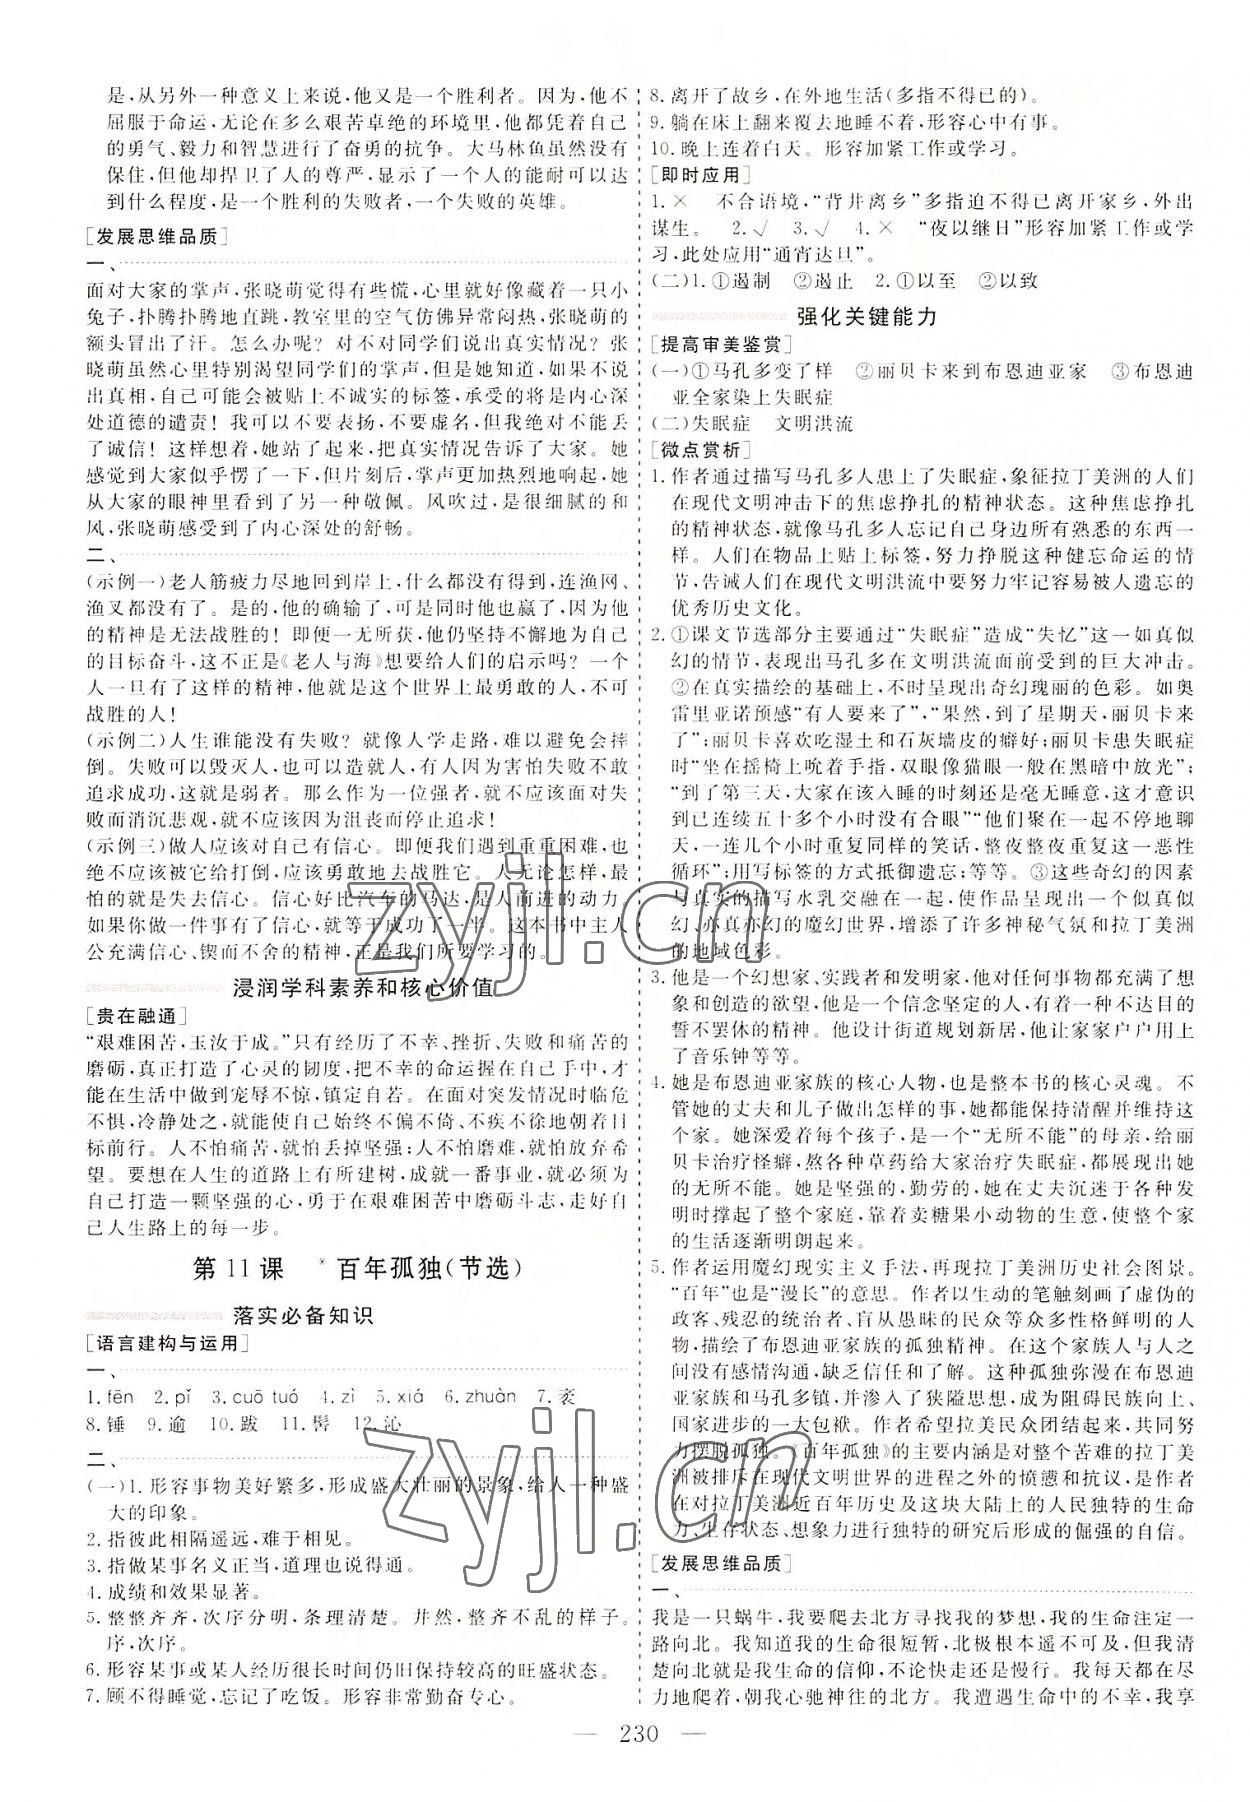 是,从另外一种意义上来说,他又是一个胜利者。因为,他不
屈服于命运,无论在多么艰苦卓绝的环境里,他都凭着自己
的勇气、毅力和智慧进行了奋勇的抗争。大马林鱼虽然没有
保住,但他却捍卫了人的尊严,显示了一个人的能耐可以达
到什么程度,是一个胜利的失败者,一个失败的英雄。
[发展思维品质]
一、
面对大家的掌声,张晓萌觉得有些慌,心里就好像藏着一只小
兔子,扑腾扑腾地直跳,教室里的空气仿佛异常闷热,张晓萌的
额头冒出了汗。怎么办呢?对不对同学们说出真实情况?张
晓萌虽然心里特别渴望同学们的掌声,但是她知道,如果不说
出真相,自己可能会被贴上不诚实的标签,承受的将是内心深
处道德的谴责!我可以不要表扬,不要虚名,但我绝对不能丢
了诚信!这样想着,她站了起来,把真实情况告诉了大家。她
感觉到大家似乎愣了一下,但片刻后,掌声更加热烈地响起,她
从大家的眼神里看到了另一种敬佩。风吹过,是很细腻的和
风,张晓萌感受到了内心深处的舒畅。
二、
(示例一)老人筋疲力尽地回到岸上,什么都没有得到,连渔网、
渔叉都没有了。是的,他的确输了,可是同时他也赢了,因为他
的精神是无法战胜的!即便一无所获,他仍坚持不懈地为自己
的目标奋斗,这不正是《老人与海》想要给人们的启示吗?一个
人一旦有了这样的精神,他就是这个世界上最勇敢的人,不可
战胜的人!
(示例二)人生谁能没有失败?就像人学走路,难以避免会摔
倒。失败可以毁灭人,也可以造就人,有人因为害怕失败不敢
追求成功,这就是弱者。那么作为一位强者,就不应该面对失
败而消沉悲观,就不应该因为沮丧而停止追求!
(示例三)做人应该对自己有信心。即便我们遇到重重困难,也
绝不应该被它给打倒,应该勇敢地去战胜它。人无论怎样,最
怕的就是失去信心。信心好比汽车的马达,是人前进的动力,
如果你做一件事有了信心,就等于成功了一半。这本书中主人
公充满信心、锲而不舍的精神,正是我们所要学习的。
浸润学科素养和核心价值
[贵在融通]
“艰难困苦,玉汝于成。”只有经历了不幸、挫折、失败和痛苦的
磨砺,真正打造了心灵的韧度,把不幸的命运握在自己手中,才
能在生活中做到宠辱不惊,镇定自若。在面对突发情况时临危
不惧,冷静处之,就能使自己始终不偏不倚、不疾不徐地朝着目
标前行。人不怕痛苦,就怕丢掉坚强;人不怕磨难,就怕放弃希
望。要想在人生的道路上有所建树,成就一番事业,就必须为
自己打造一颗坚强的心,勇于在艰难困苦中磨砺斗志,走好自
己人生路上的每一步。
第 11 课 *百年孤独(节选)
落实必备知识
[语言建构与运用]
一、
1.fēn 2.pǐ 3.cuō tuó 4.zì 5.xiá 6.zhuàn 7.衮
8.锤 9.逾 10.跋 11.髻 12.沁
二、
(一)1.形容事物美好繁多,形成盛大壮丽的景象,给人一种盛
大的印象。
2.指彼此相隔遥远,难于相见。
3.指做某事名义正当,道理也说得通。
4.成绩和效果显著。
5.整整齐齐,次序分明,条理清楚。井然,整齐不乱的样子。
序,次序。
6.形容某事或某人经历很长时间仍旧保持较高的旺盛状态。
7.顾不得睡觉,忘记了吃饭。形容非常勤奋专心。
8.离开了故乡,在外地生活(多指不得已的)。
9.躺在床上翻来覆去地睡不着,形容心中有事。
10.晚上连着白天。形容加紧工作或学习。
[即时应用]
1.× 不合语境,“背井离乡”多指迫不得已离开家乡,外出
谋生。 2.√ 3.√ 4.× “夜以继日”形容加紧工作或学
习,此处应用“通宵达旦”。
(二)1.①遏制 ②遏止 2.①以至 ②以致
强化关键能力
[提高审美鉴赏]
(一)①马孔多变了样 ②丽贝卡来到布恩迪亚家 ③布恩迪
亚全家染上失眠症
(二)失眠症 文明洪流
[微点赏析]
1.作者通过描写马孔多人患上了失眠症,象征拉丁美洲的人们
在现代文明冲击下的焦虑挣扎的精神状态。这种焦虑挣扎
的精神状态,就像马孔多人忘记自己身边所有熟悉的东西一
样。人们在物品上贴上标签,努力挣脱这种健忘命运的情
节,告诫人们在现代文明洪流中要努力牢记容易被人遗忘的
优秀历史文化。
2.①课文节选部分主要通过“失眠症”造成“失忆”这一如真似
幻的情节,表现出马孔多在文明洪流面前受到的巨大冲击。
②在真实描绘的基础上,不时呈现出奇幻瑰丽的色彩。如奥
雷里亚诺预感“有人要来了”,“果然,到了星期天,丽贝卡来
了”;丽贝卡喜欢吃湿土和石灰墙皮的癖好;丽贝卡患失眠症
时“坐在摇椅上吮着手指,双眼像猫眼一般在黑暗中放光”;
“到了第三天,大家在该入睡的时刻还是毫无睡意,这才意识
到已连续五十多个小时没有合眼”“他们聚在一起不停地聊
天,一连几个小时重复同样的笑话,整夜整夜重复这一恶性
循环”;用写标签的方式抵御遗忘;等等。③这些奇幻的因素
与真实的描写水乳交融在一起,使作品呈现出一个似真似
幻、亦真亦幻的魔幻世界,增添了许多神秘气氛和拉丁美洲
的地域色彩。
3.他是一个幻想家、实践者和发明家,他对任何事物都充满了想
象和创造的欲望,他是一个信念坚定的人,有着一种不达目的
誓不罢休的精神。他设计街道规划新居,他让家家户户用上
了音乐钟等等。
4.她是布恩迪亚家族的核心人物,也是整本书的核心灵魂。不
管她的丈夫和儿子做出怎样的事,她都能保持清醒并维持这
个家。她深爱着每个孩子,是一个“无所不能”的母亲,给丽
贝卡治疗怪癖,熬各种草药给大家治疗失眠症,都展现出她
的无所不能。她是坚强的,勤劳的,她在丈夫沉迷于各种发
明时撑起了整个家庭,靠着卖糖果小动物的生意,使整个家
的生活逐渐明朗起来。
5.作者运用魔幻现实主义手法,再现拉丁美洲历史社会图景。
“百年”也是“漫长”的意思。作者以生动的笔触刻画了虚伪的
政客、残忍的统治者、盲从愚昧的民众等众多性格鲜明的人
物,描绘了布恩迪亚家族的孤独精神。在这个家族人与人之
间没有感情沟通,缺乏信任和了解。这种孤独弥漫在布恩迪
亚家族和马孔多镇,并渗入了狭隘思想,成为阻碍民族向上、
国家进步的一大包袱。作者希望拉美民众团结起来,共同努
力摆脱孤独。《百年孤独》的主要内涵是对整个苦难的拉丁美
洲被排斥在现代文明世界的进程之外的愤懑和抗议,是作者
在对拉丁美洲近百年历史及这块大陆上的人民独特的生命
力、生存状态、想象力进行独特的研究后形成的倔强的自信。
[发展思维品质]
一、
我是一只蜗牛,我要爬去北方寻找我的梦想,我的生命注定一
路向北。我知道我的生命很短暂,北极根本遥不可及,但我清
楚向北就是我生命的信仰,不论快走还是慢行。我每天都在尽
力地爬着,朝我心驰神往的北方。我遭遇生命中的不幸,我享
— 230 —
zyjl.cn
zyjl.cn